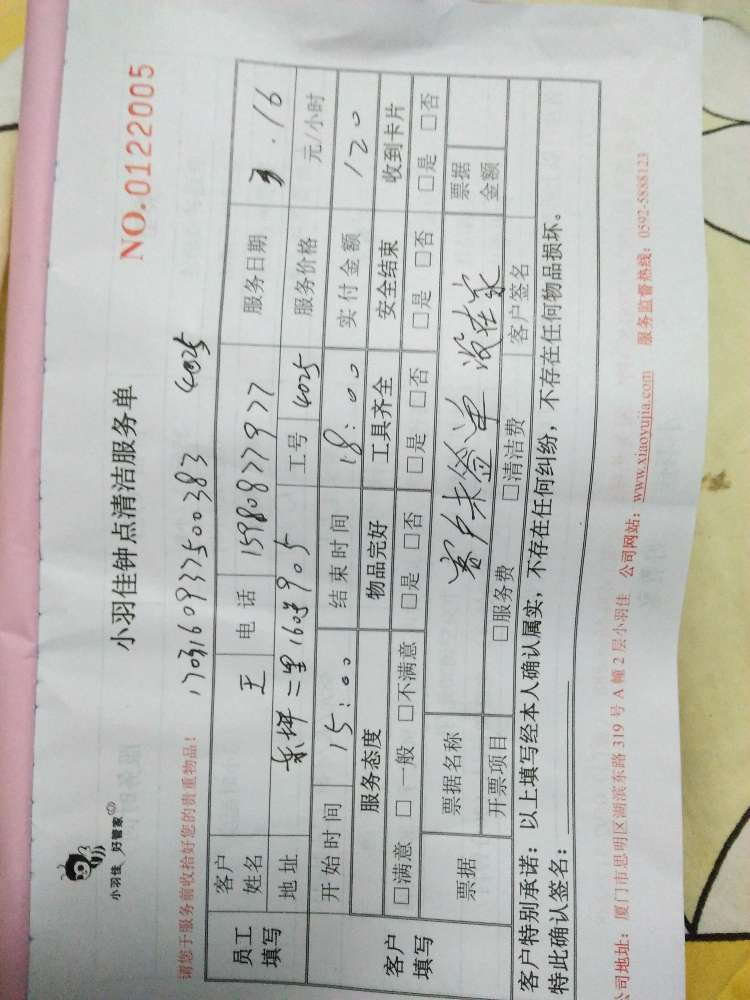 小羽佳 好管家
小羽佳钟点清洁服务单
NO.0122005
请您于服务前收拾好您的贵重物品!
1703160937500383 4025
员工填写 客户姓名 王 电话 15980827977 服务日期 3.16
地址 二里160号905 工号 4025 服务价格 元/小时
客户填写 开始时间 15:00 结束时间 18:00 实付金额 120
服务态度 物品完好 工具齐全 安全结束 收到卡片
□满意 □一般 □不满意 □是 □否 □是 □否 □是 □否 □是 □否
票据 票据名称 客户未签单 没在家 票据金额
开票项目 □服务费 □清洁费 客户签名
客户特别承诺:以上填写经本人确认属实,不存在任何纠纷,不存在任何物品损坏。
特此确认签名:
公司地址:厦门市思明区湖滨东路319号A幢2层小羽佳 公司网站:www.xiaoyujia.com 服务监督热线:0592-5888123